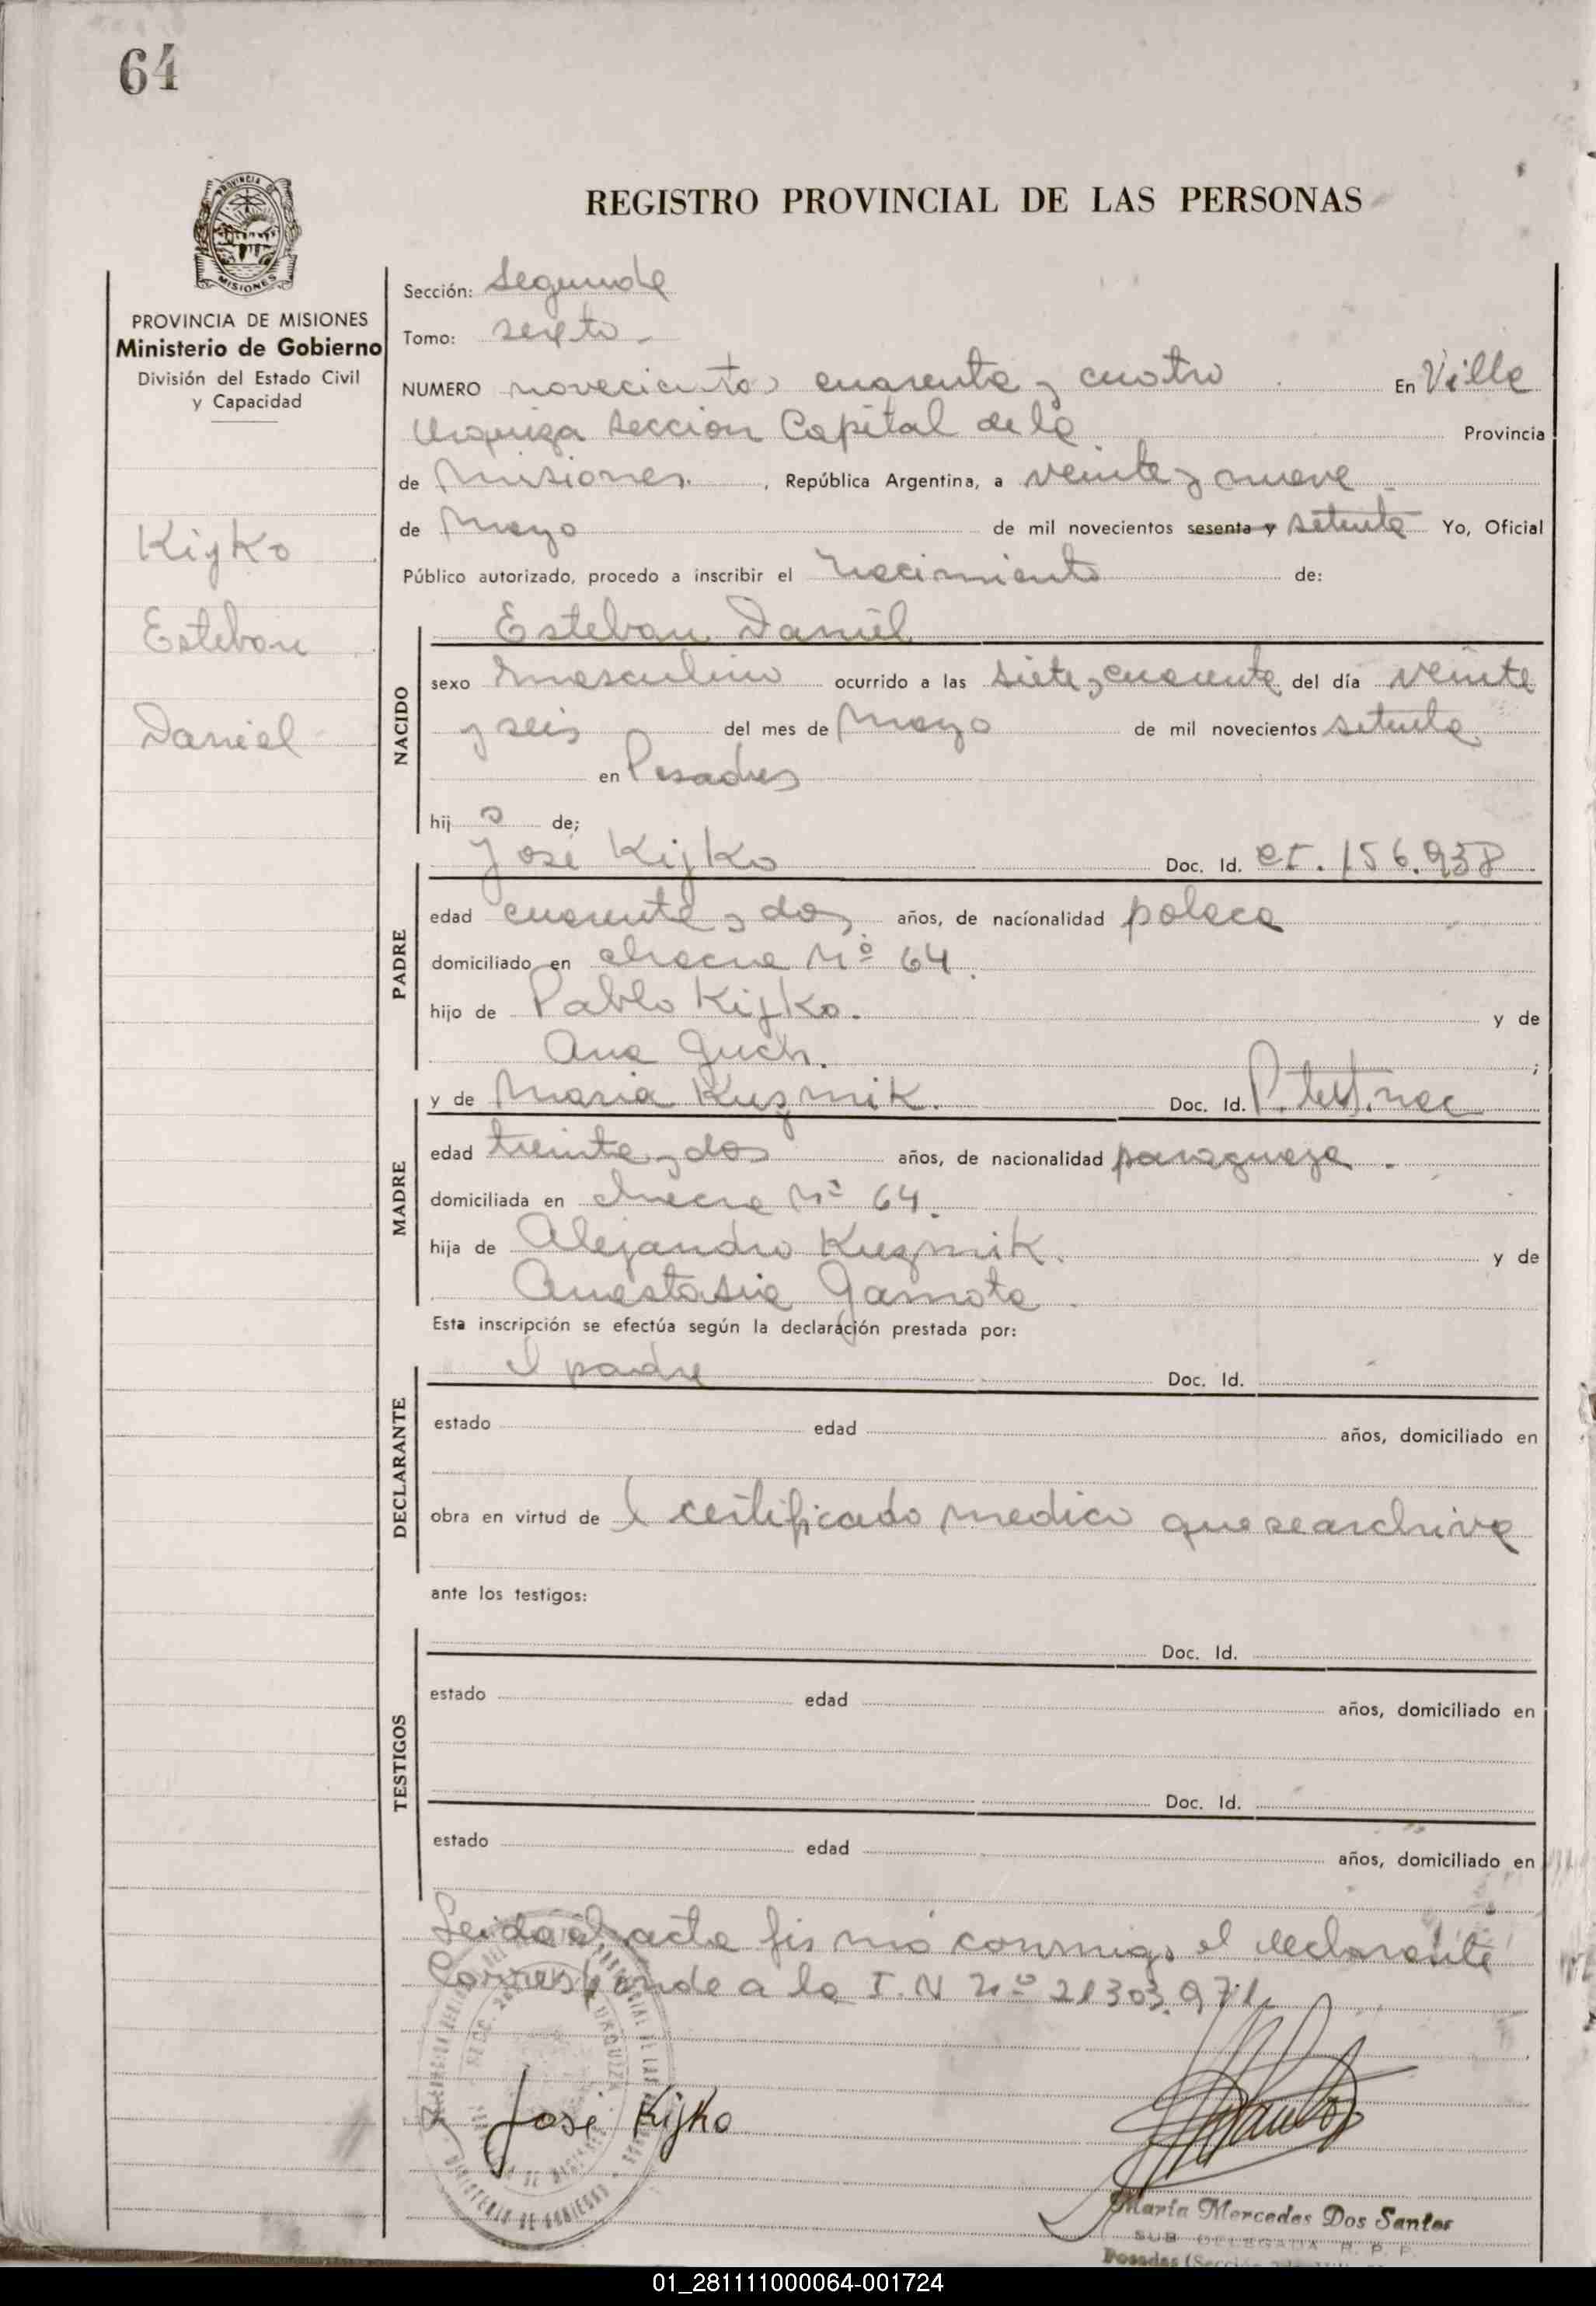 64
REGISTRO PROVINCIAL DE LAS PERSONAS
PROVINCIA DE MISIONES
Ministerio de Gobierno
División del Estado Civil
y Capacidad
Kijko
Esteban
Daniel
Sección: segunda
Tomo: sexto -
NUMERO novecientos cuarenta y cuatro En Villa
Urquiza sección Capital de la Provincia
de Misiones , República Argentina, a veinte y nueve -
de Mayo de mil novecientos sesenta y setenta Yo, Oficial
Público autorizado, procedo a inscribir el Nacimiento de:
Esteban Daniel
NACIDO
sexo masculino ocurrido a las siete y cuarenta del día veinte
y seis del mes de Mayo de mil novecientos setenta
en Posadas
hij o de;
José Kijko Doc. Id. 156.938
PADRE
edad cuarenta y dos años, de nacionalidad polaca
domiciliado en chacra Nº 64.
hijo de Pablo Kijko. y de
Ana Juch. ;
y de Maria Kuzmik. Doc. Id.
MADRE
edad treinta y dos años, de nacionalidad paraguaya .
domiciliada en chacra Nº 64.
hija de Alejandro Kuzmik. y de
Anastasia Gamota
Esta inscripción se efectúa según la declaración prestada por:
el padre Doc. Id.
DECLARANTE
estado edad años, domiciliado en
obra en virtud de l certificado medico que se archiva
ante los testigos:
Doc. Id.
TESTIGOS
estado edad años, domiciliado en
Doc. Id.
estado edad años, domiciliado en
Leida el acta firmó conmigo el declarante
Corresponde a la I.N Nº 21303.971
José Kijko
María Mercedes Dos Santos
SUB DELEGADA R. P. P.
Posadas
01_281111000064-001724